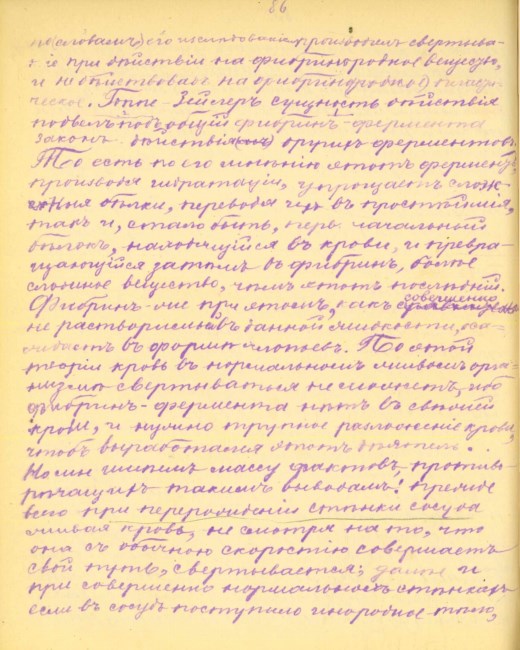 86
по(словамъ) его изслѣдованія производитъ свертыва-
ніе при дѣйствіи на фибриногородное вещество,
и не дѣйствовать на фибрин
ческое. Гоппе-Зейлеръ сущность дѣйствія
подвелъ подъ общій фибринъ-фермента
законъ дѣйствія другихъ ферментовъ.
То есть по его мнѣнію этотъ ферментъ,
производя гидратацію, упрощаетъ слож-
ныя бѣлки, переводя ихъ въ простѣйшія,
такъ и, стало быть, первоначальный
бѣлокъ, находящійся въ крови, и превра-
щающійся затѣмъ въ фибринъ, болѣе
сложное вещество, чѣмъ этотъ послѣдній.
Фибринъ-же при этомъ, какъ совершенно
не растворимый въ данной жидкости, оса-
ждаетъ въ формѣ хлопьевъ. По этой
теоріи кровь въ нормальномъ живомъ орга-
низмѣ свертываться не можетъ, ибо
фибринъ-фермента нѣтъ въ свѣжей
крови, и нужно трупное разложеніе крови,
чтобъ выработался этотъ дѣятель.
Но мы имѣемъ массу фактовъ, противо-
рѣчащихъ такимъ выводамъ! Прежде
всего при перерожденіи стѣнки сосуда
живая кровь, не смотря на то, что
она съ обычною скоростію совершаетъ
свой путь, свертывается; далѣе и
при совершенно нормальныхъ стѣнкахъ
если въ сосудъ поступило инородное тѣло,